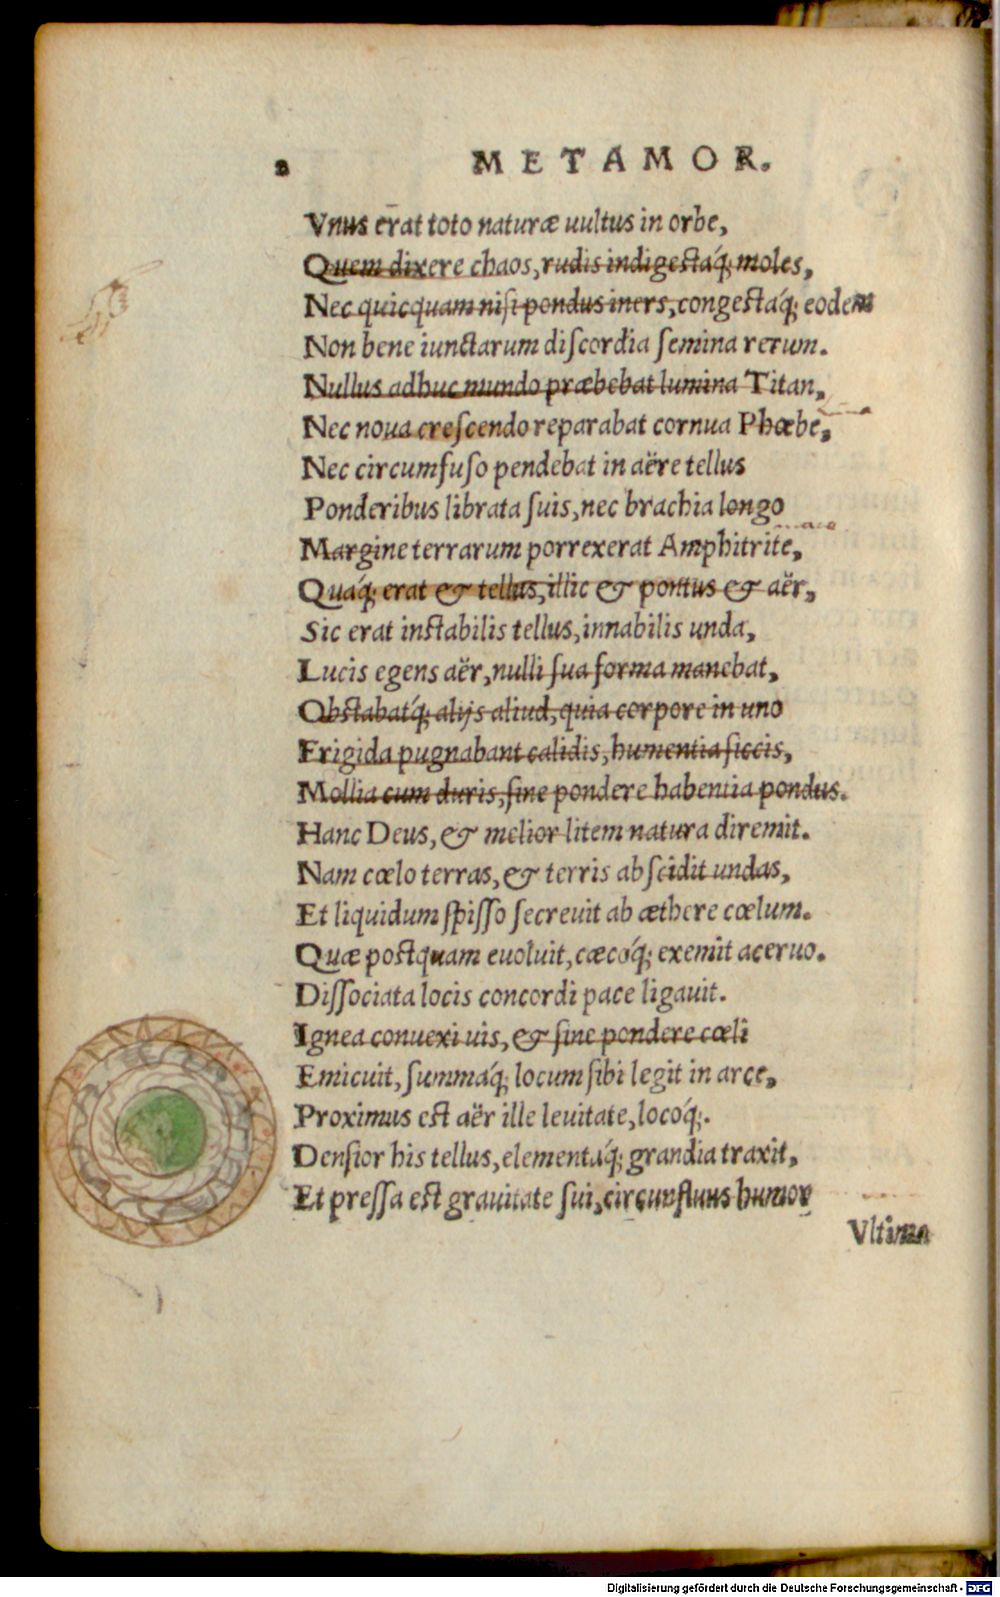 2 METAMOR.
Vnus erat toto naturæ uultus in orbe,
Quem dixere chaos, rudis indigestaq́; moles,
Nec quicquam nisi pondus iners, congestaq́; eodem
Non bene iunctarum discordia semina rerum.
Nullus adhuc mundo præbebat lumina Titan,
Nec noua crescendo reparabat cornua Phœbe,
Nec circumfuso pendebat in aëre tellus
Ponderibus librata suis, nec brachia longo
Margine terrarum porrexerat Amphitrite,
Quaq́; erat & tellus, illic & pontus & aër,
Sic erat instabilis tellus, innabilis unda,
Lucis egens aër, nulli sua forma manebat,
Obstabatq́; alijs aliud, quia corpore in uno
Frigida pugnabant calidis, humentia siccis,
Mollia cum duris, sine pondere habentia pondus.
Hanc Deus, & melior litem natura diremit.
Nam cœlo terras, & terris abscidit undas,
Et liquidum spisso secreuit ab æthere cœlum.
Quæ postquam euoluit, cæcoq́; exemit aceruo.
Dissociata locis concordi pace ligauit.
Ignea conuexi uis, & sine pondere cœli
Emicuit, summaq́; locum sibi legit in arce,
Proximus est aër ille leuitate, locoq́;.
Densior his tellus, elementaq́; grandia traxit,
Et pressa est grauitate sui, circunfluus humor
Vltima
Digitalisierung gefördert durch die Deutsche Forschungsgemeinschaft - DFG